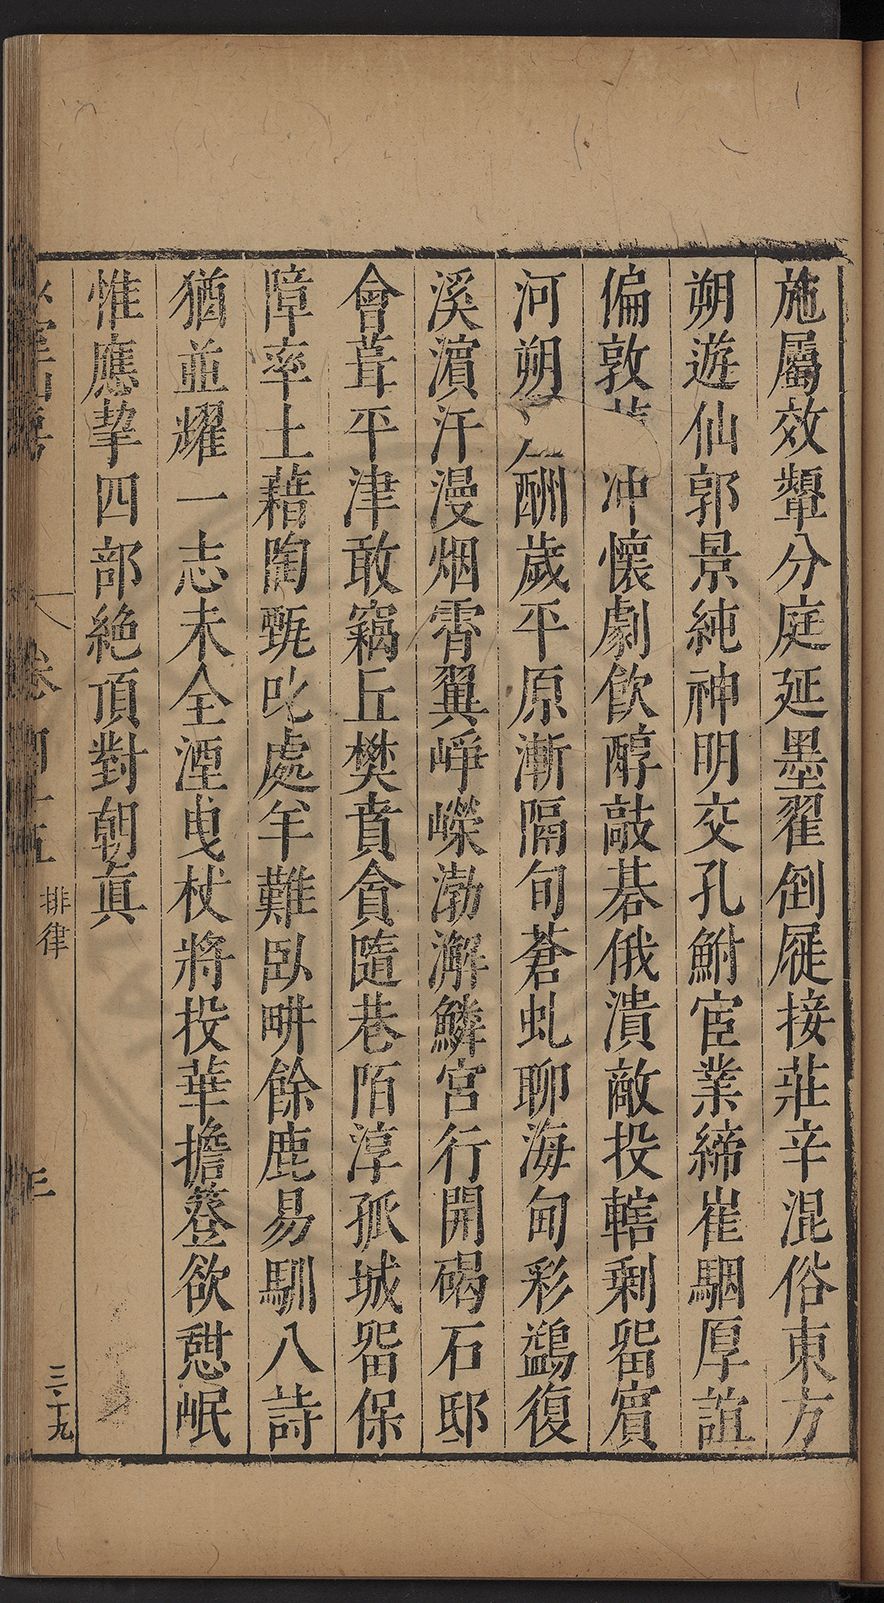 施屬效顰分庭延墨翟倒屣接莊辛混俗東方
朔遊仙郭景純神明交孔鮒宦業締崔駰厚誼
偏敦冲懷劇飲醇敲碁俄潰敵投轄剩留賓
河朔酬歲平原漸隔旬蒼虬聊海甸彩鷁復
溪濵汗漫烟霄翼崢嶸渤澥鱗宮行開碣石邸
會葺平津敢竊丘樊賁貪隨巷陌淳孤城留保
障率土藉陶甄叱處羊難臥畊餘鹿易馴八詩
猶並耀一志未全湮曳杖將投華擔簦欲憇岷
惟應挚四部絶頂對朝真
卷
五
排律
三·十九